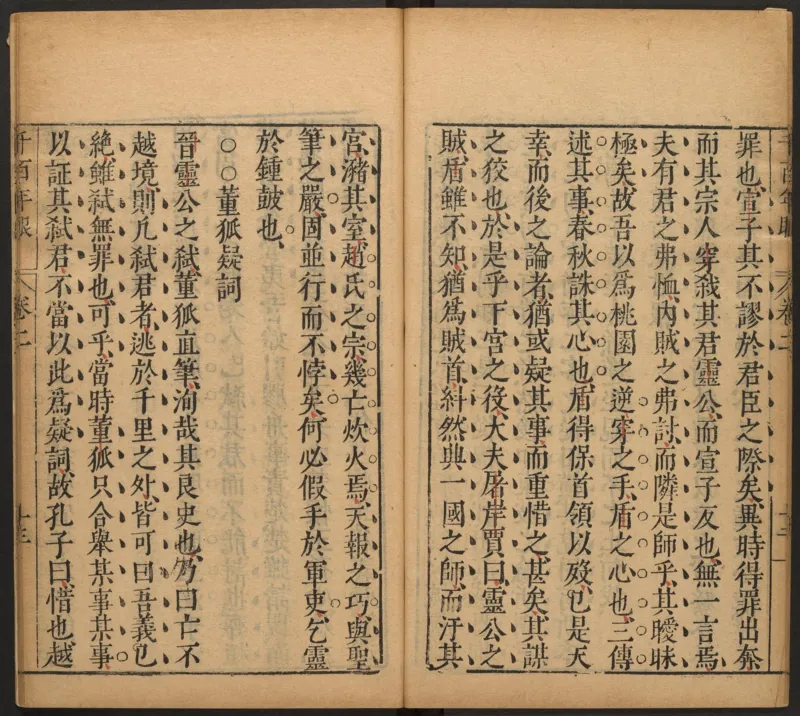 罪也宣子其不謬於君臣之際矣異時得罪出奔
而其宗人穿弒其君靈公而宣子反也無一言焉
夫有君之弗恤内賊之弗討而隣是師乎其曖昧
極矣故吾以爲桃園之逆穿之手盾之心也三傳
述其事春秋誅其心也盾得保首領以歿已是天
幸而後之論者猶或疑其事而重惜之甚矣其謀
之狡也於是乎下宮之役大夫屠岸賈曰靈公之
賊盾雖不知猶爲賊首糾然典一國之師而汙其
宮瀦其室趙氏之宗幾亡炊火焉天報之巧與聖
筆之嚴固並行而不悖矣何必假手於軍吏乞靈
於鍾皷也
○○董狐疑詞
晉靈公之弒董狐直筆洵哉其良史也乃曰亡不
越境則凡弒君者逃於千里之外皆可曰吾義已
絶雖弒無罪也可乎當時董狐只合舉某事某事
以証其弒君不當以此爲疑詞故孔子曰惜也越
千百年眼
卷二
十三